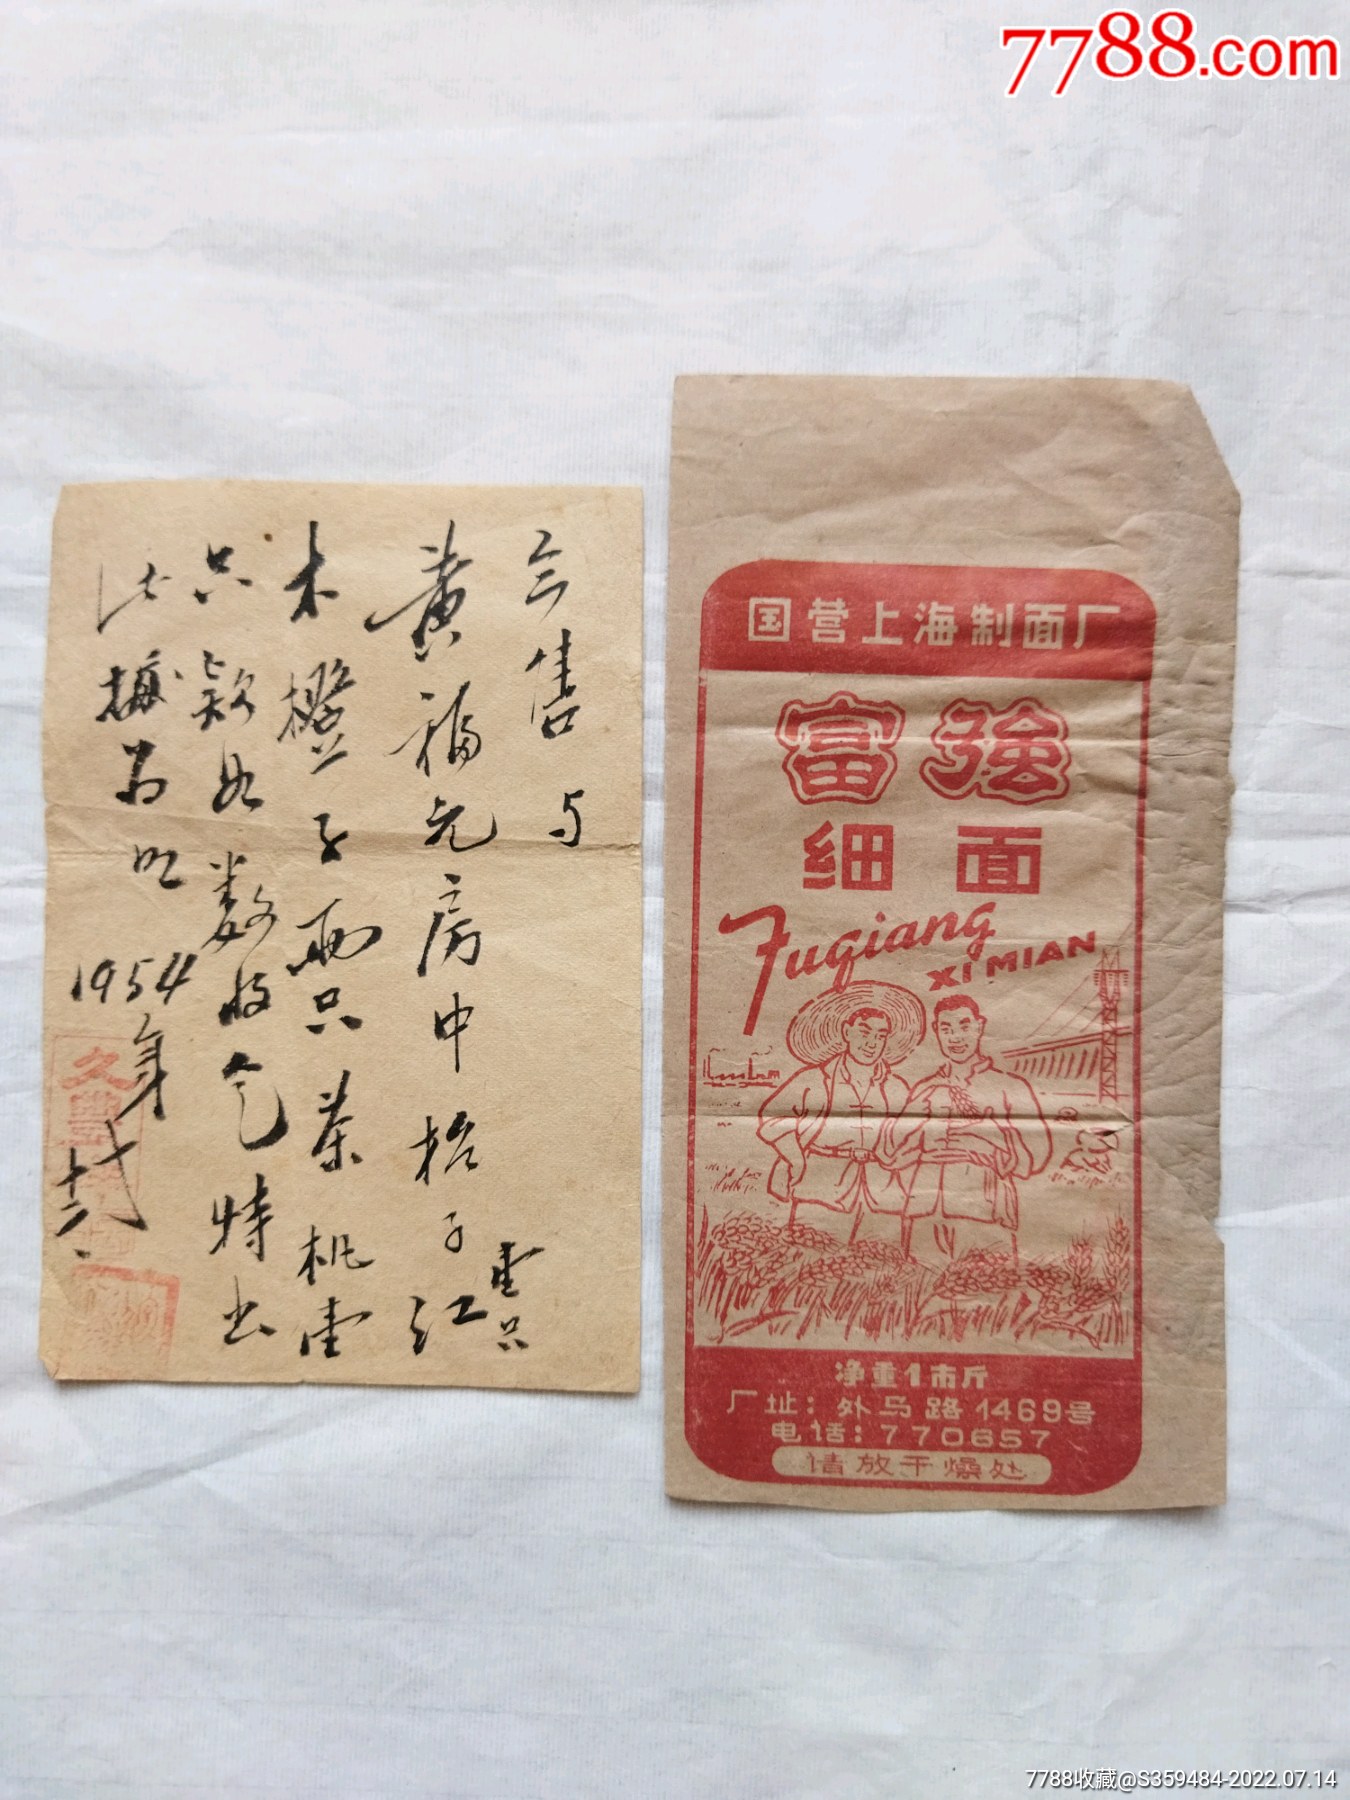 7788.com
今售与
黄福元房中抬子江
壹只
木櫈子两只茶机壹
只款如数收乞特出
此据为
1954年
国营上海制面厂
富強
细面
Fuqiang
XIMIAN
净重1市斤
厂址：外马路1469号
电话：770657
请放干燥处
7788收藏@S359484-2022.07.14